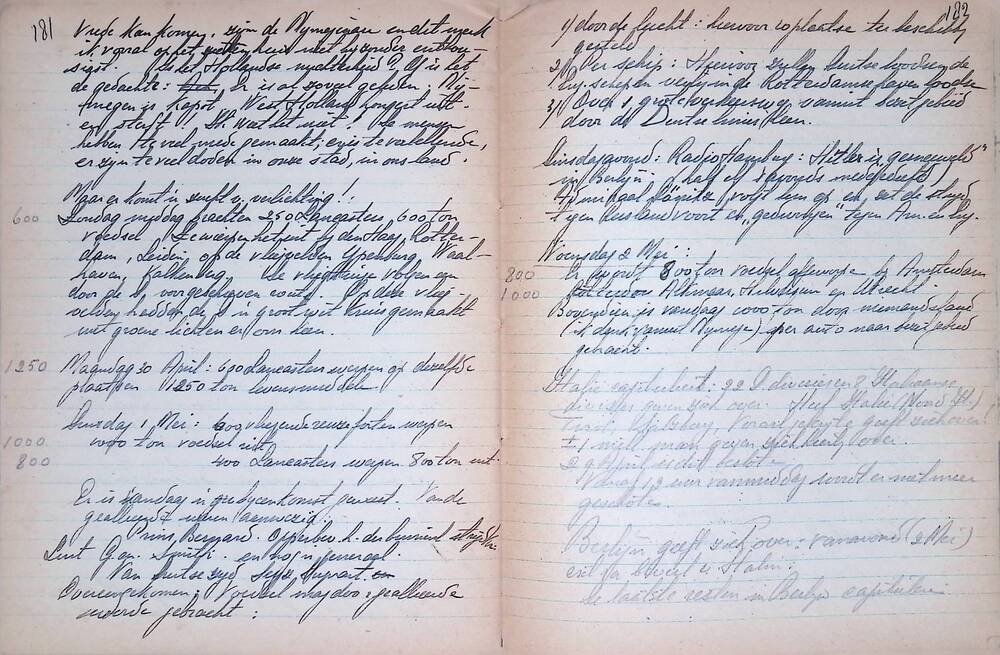 181
Vrede kan komen, zijn de Nijmegenaren en dit merk
ik vooral op het, niet bijzonder enthou-
siast. Is het Hollandse nuchterheid? Of is het
de gedachte: Er is al zoveel geleden. Nij-
megen is kapot. West Holland hongert uit
en sterft! Ik weet het niet! De mensen
hebben te veel mede gemaakt, er is te veel ellende,
er zijn te veel doden in onze stad, in ons land.
Maar er komt in zicht v. verlichting!!
600
Zondag middag brachten 250 Lancasters, 600 ton
voedsel. Ze wierpen het uit bij den Haag, Rotter-
dam, Leiden, op de vliegvelden Ypenburg, Waal-
haven, Valkenburg. De vliegtuigen volgen een
door de D. voorgeschreven route. Op deze vlieg-
velden hebben de D. n groot wit kruis gemaakt
met groene lichten er om heen.
1250
Maandag 30 April: 600 Lancasters werpen op dezelfde
plaatsen 1250 ton levensmiddelen
Dinsdag 1 Mei: 400 vliegende reuze forten werpen
1000
1000 ton voedsel uit
800
400 Lancasters werpen 800 ton uit.
Er is Zondag 'n bijeenkomst geweest. Van de
geallieerde waren aanwezig:
Prins Bernard. Opperbev. h. der binnenl. strijdkr.
Luit Gen. Smith. en nog n generaal.
Van Duitse zijd
Overeengekomen is Voedsel mag door geallieerde
worde gebracht:
183
1/ door de lucht: hiervoor 10 plaatse ter beschikking
gesteld
2/ Per schip: Hiervoor zullen Duitse loodsen de
schepen veilig in de Rotterdamse haven loodsen
3/ Over 1 grote verkeersweg vanuit bevrijd gebied
door de Duitse linies heen.
Dinsdagavond: Radio Hamburg: "Hitler is gesneuveld"
in Berlijn. (half elf s'avonds medegedeeld)
Admiraal Dönitz, volgt hem op en zet de strijd
tegen Rusland voort en „gedwongen" tegen Am. en Eng.
Woensdag 2 Mei:
800
er wordt 800 ton voedsel afgeworpe bij Amsterdam
1000
Rotterdam Alkmaar, Hilversum en Utrecht.
Bovendien is vandaag 1000 ton door niemandsland
(ik denk vanuit Nijmege) per auto naar bezet gebied
gebracht.
Italië capituleert: 22 D. divisies en 8 Italiaanse
divisies geven zich over. Heel Italië (Noord It.)
Tirol, Salzburg, Vorarlberg geeft zich over.
± 1 millioen man geven zich hierij over.
29 April is dit beslote
Vanaf 12 uur vanmiddag wordt er niet meer
geschote.
Berlijn geeft zich over: vanavond (2 Mei)
Stalin:
de laatste resten in Berlijn capituleren